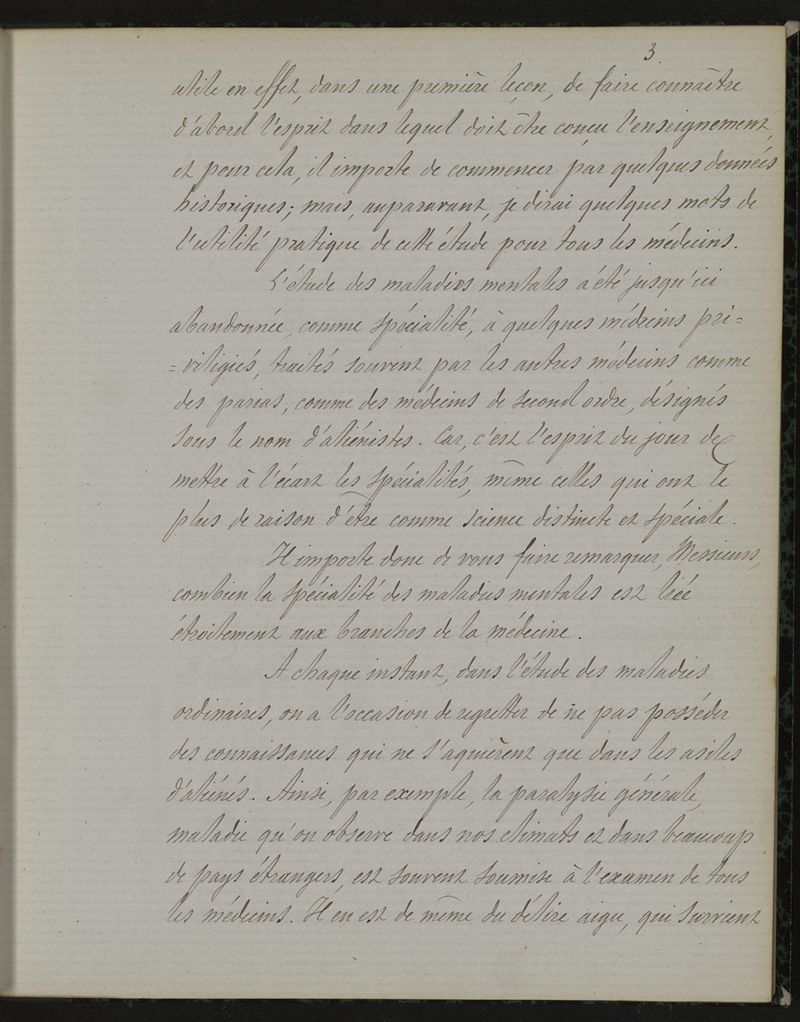 3
utile en effet, dans une première leçon, de faire connaître
d'abord l'esprit dans lequel doit être conçu l'enseignement,
et pour cela, il importe de commencer par quelques données
historiques; mais, auparavant, je dirai quelques mots de
l'utilité pratique de cette étude pour tous les médecins.
L'étude des maladies mentales a été jusqu'ici
abandonnée, comme spécialité, à quelques médecins pri=
=viligiés, traités souvent par les autres médecins comme
des parias, comme des médecins de second ordre, désignés
sous le nom d'aliénistes. Car, c'est l'esprit du jour de
mettre à l'écart les spécialités, même celles qui ont le
plus de raison d'être comme science distincte et spéciale.
Il importe donc de vous faire remarquer, Messieurs,
combien la spécialité des maladies mentales est liée
étroitement aux branches de la médecine.
A chaque instant, dans l'étude des maladies
ordinaires, on a l'occasion de regretter de ne pas posséder
des connaissances qui ne s'aquièrent que dans les asiles
d'aliénés. Ainsi, par exemple, la paralysie générale,
maladie qu'on observe dans nos climats et dans beaucoup
de pays étrangers, est souvent soumise à l'examen de tous
les médecins. Il en est de même du délire aigu, qui survient